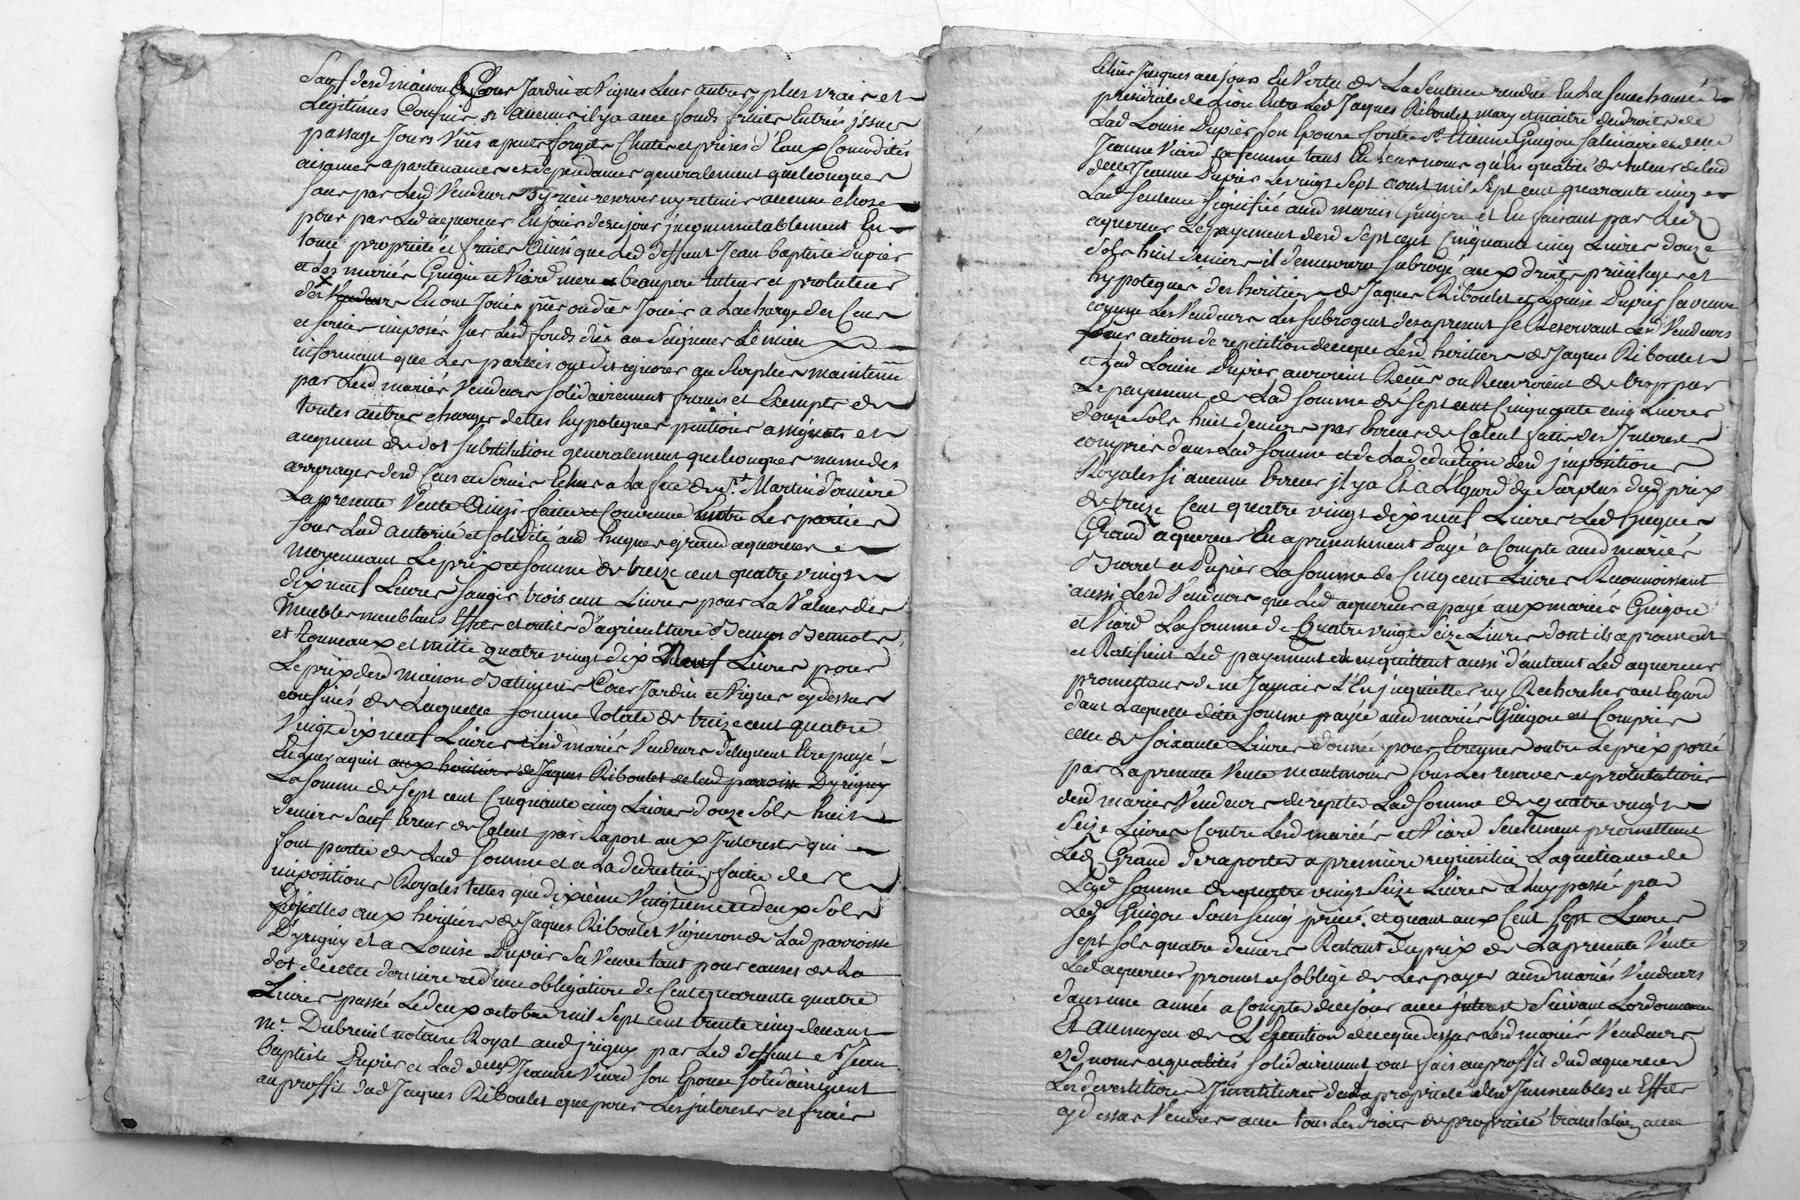 Sauf desd maison Cour Jardin et Vignes Leurs autres plus vrais et
Legitimes Confins si aucuns il y a avec fonds fruits Entrées issues
passage Jours Vües apents forgets Chutes et prises d'Eaux Comodités
aisances apartenances et dependances generalement quelconques
sans par Lesd Vendeurs s'y rien reserver ny retenir aucune chose
pour par Led acquereur En jouir des ce jour incommutablement En
toute proprieté et fruits Ainsi que Led deffunt Jean Baptiste Dupier
et Les mariés Guigou et Viard mere et beaupere tuteur et protuteur
des Vendeurs En ont Jouis pûs ou dûs Jouir a La charge des Cens
et servis imposés sur Lesd fonds dûs au Seigneur
informant que Les parties ont dit ignorer au Surplus maintenu
par Lesd mariés Vendeurs solidairement francs et Exempts de
toutes autres charges dettes hypoteques pentions assignats et
augment de dot substitution generalement quelconques meme des
arrerages desd Cens et Servis Echus a La fete de St Martin derniere
La presente Vente Ainsi faite et Convenue Entre Les parties
sous Lad autorité et solidité aud hugues grand acquereur
moyennant Le prix et somme de treize cent quatre vingt
dix neuf Livres scavoir trois cent Livres pour La Valeur des
Meubles meublants Effets et outils d'agriculture
et tonneaux et mille quatre vingt dix Neuf Livres pour
Le prix desd maison Batiments Cour Jardin et Vignes cy dessus
confinés de Laquelle somme totale de treize cent quatre
Vingt dix neuf Livres Lesd mariés Vendeurs deleguent Etre payé
En leur aquit aux heritiers de Jaques Riboulet de Lad parroisse Dyrigny
La somme de sept cent Cinquante cinq Livres douze Sols huit
deniers Sauf Erreur de Calcul par Raport aux Interests qui
font partie de Lad somme et a La deduction faite de
impositions Royales telles que dixieme Vingtieme et deux Sols
pour livres aux heritiers de Jaques Riboulet Vigneron de Lad parroisse
D'yrigny et a Louise Dupier Sa Veuve tant pour causes de La
dot de cette derniere et d'une obligation de Cent quarante quatre
Livres passée Le deux octobre mil Sept cent trente cinq devant
Me Dubreuil notaire Royal aud yrigny par Led deffunt Sr Jean
Baptiste Dupier et Lad dlle Jeanne Viard son Epouse solidairement
au proffit dud Jaques Riboulet que pour Les interests et frais
Echus Jusques a ce jour En Vertu de La Sentence rendue En La Senechaussée
presidiale de Lion Entre Led Jaques Riboulet mary et maitre des droits de
Lad Louise Dupier son Epouse Contre Sr Etienne Guigou Salinaire et dlle
Jeanne Viard sa femme tant En leur noms qu'en qualité de tuteur de lad
dlle Jeanne Dupier Le vingt Sept aoust mil Sept cent quarante cinq
Lad Sentence signifiée aud mariés Guigou et En faisant par Led
acquereur Le payement desd Sept cent Cinquante cinq Livres douze
Sols huit deniers il demeurera subrogé aux droits privileges et
hypoteques des heritiers de Jaques Riboulet et Louise Dupier sa veuve
comme Les Vendeurs Les subrogent des a present se Reservant Lesd Vendeurs
Leurs action de repetition de ce que Lesd heritiers de Jaques Riboulet
et Lad Louise Dupier auroient Reçûs ou Recevroient de trop par
Le payement de Lad somme de sept cent Cinquante cinq Livres
douze Sols huit deniers par Erreur de Calcul faits des Interests
compris dans Lad somme et de La deduction desd impositions
Royales si aucune Erreur il y a Et a L'egard du Surplus dud prix
de treize Cent quatre vingt dix neuf Livres Led hugues
Grand acquereur En a presentement Payé a Compte aud mariés
et Dupier La somme de Cinq cent Livres Reconnoissent
aussi Lesd Vendeurs que Led acquereur a payé aux mariés Guigou
et Viard La somme de Quatre vingt Seize Livres dont ils aprouvent
et Ratifient Led payement et en quittent aussi d'autant Led acquereur
promettans de ne Jamais L'En inquietter ny Rechercher a cet Egard
dans Laquelle ditte somme payée aud mariés Guigou est Compris
celle de soixante Livres donnée pour Etreynes outre Le prix porté
par La presente Vente neantmoins sous Les reserves et protestations
desd mariés Vendeurs de repeter Lad somme de quatre vingt
Seize Livres Contre Lesd mariés et Viard Seulement promettant
Led Grand de raporter a premiere requisition La quittance de
Lad somme de quatre vingt Seize Livres a luy passée par
Led Guigou Sous seing privé et quant aux Cent Sept Livres
Sept sols quatre deniers Restant du prix de La presente Vente
Led acquereur promet et s'oblige de Les payer aud mariés Vendeurs
dans une année a Compter de ce jour avec interest Suivant L'ordonnance
Et au moyen de L'Execution de ce que dessus Lesd mariés Vendeurs
esd noms et qualités solidairement ont fait au proffit dud acquereur
Les devestitures Investitures de La proprieté desd Immeubles et Effets
cy dessus Vendus avec tous Les droits de proprieté translation avec